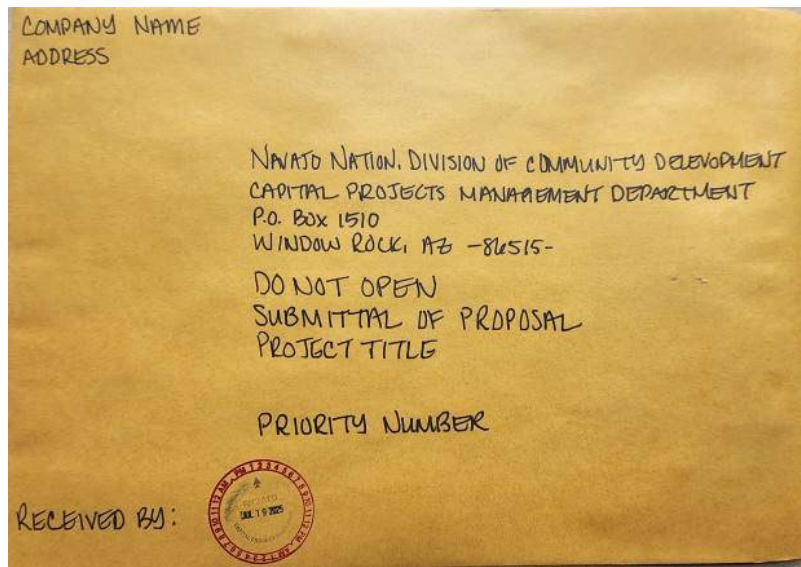 COMPANY NAME
ADDRESS
NAVAJO NATION, DIVISION OF COMMUNITY DELEVOPMENT
CAPITAL PROJECTS MANAGEMENT DEPARTMENT
P.O. BOX 1510
WINDOW ROCK, AZ -86515-
DO NOT OPEN
SUBMITTAL OF PROPOSAL
PROJECT TITLE
PRIORITY NUMBER
RECEIVED BY:
JUL 19 2025